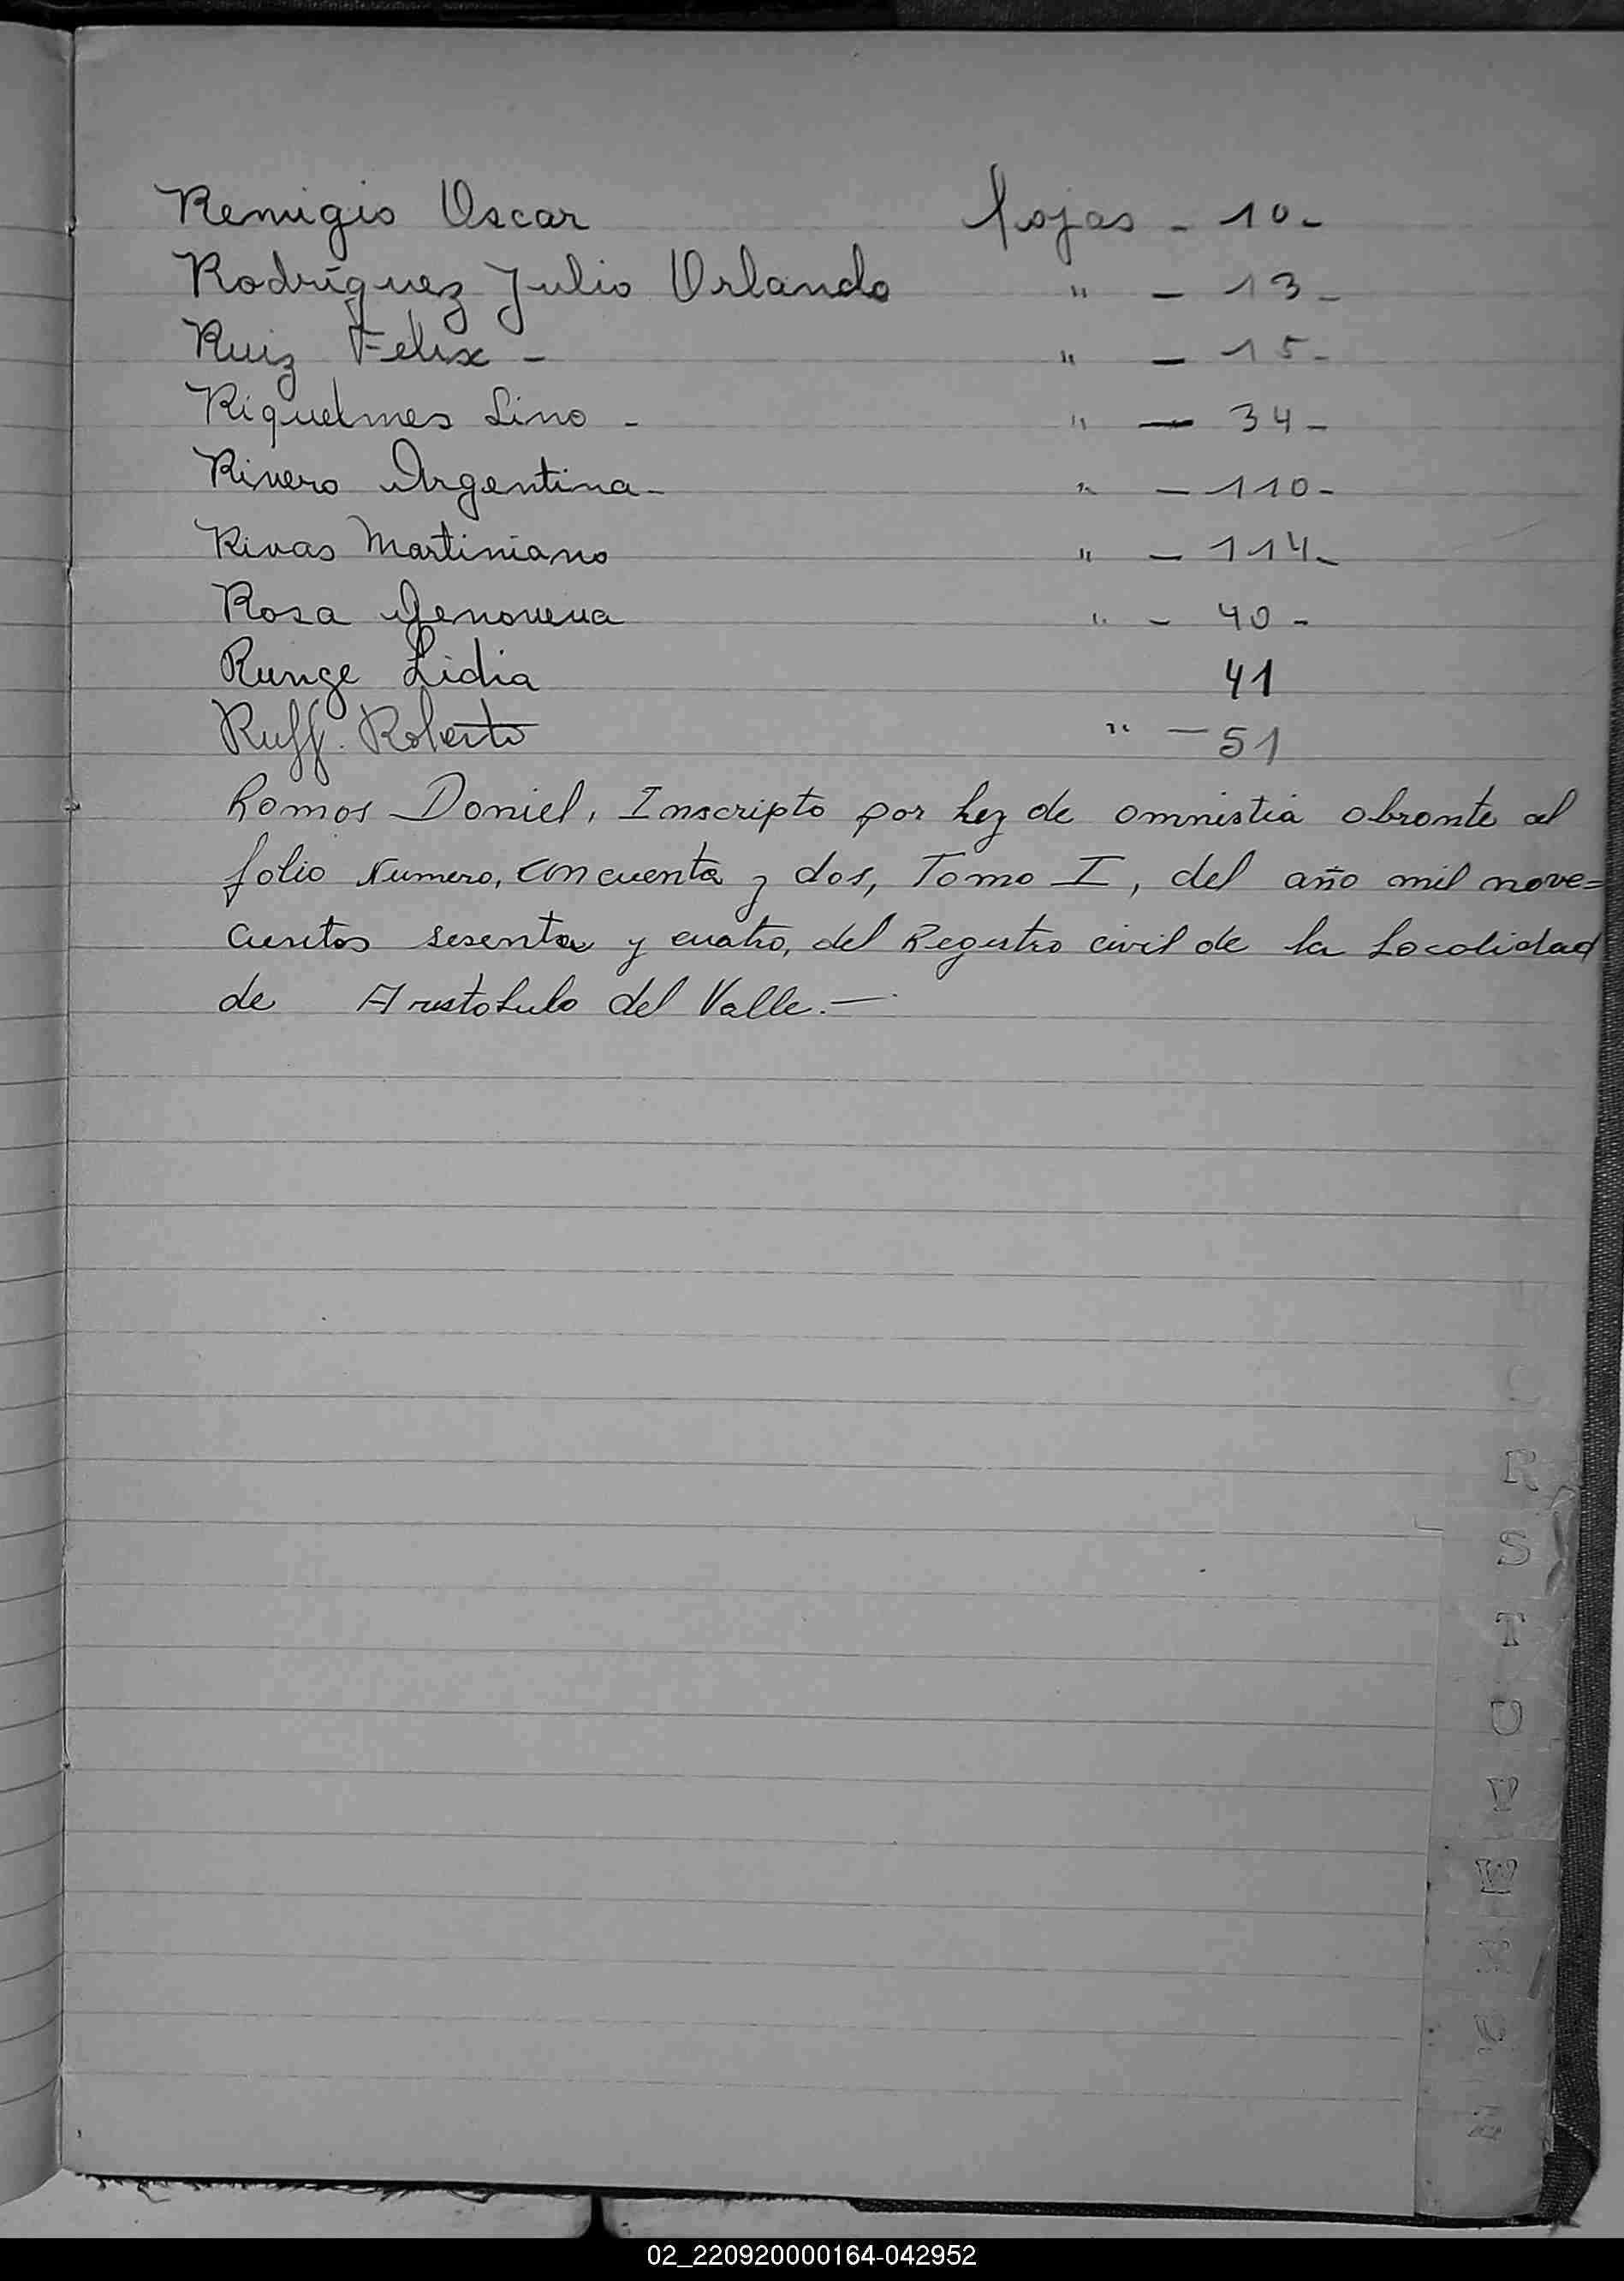 Remigio Oscar fojas - 10 -
Rodríguez Julio Orlando " - 13 -
Ruiz Felix - " - 15 -
Riquelmes Lino - " - 34 -
Rivero Argentina - " - 110 -
Rivas Martiniano " - 114 -
Rosa Genoveva " - 40 -
Runge Lidia 41
Ruff. Roberto " - 51
Ramos Daniel, Inscripto por Ley de amnistia obrante al
folio Numero, cincuenta y dos, Tomo I, del año mil nove=
cientos sesenta y cuatro, del Registro civil de la Localidad
de Aristobulo del Valle. —
R
S
T
U
V
W
X
02_220920000164-042952